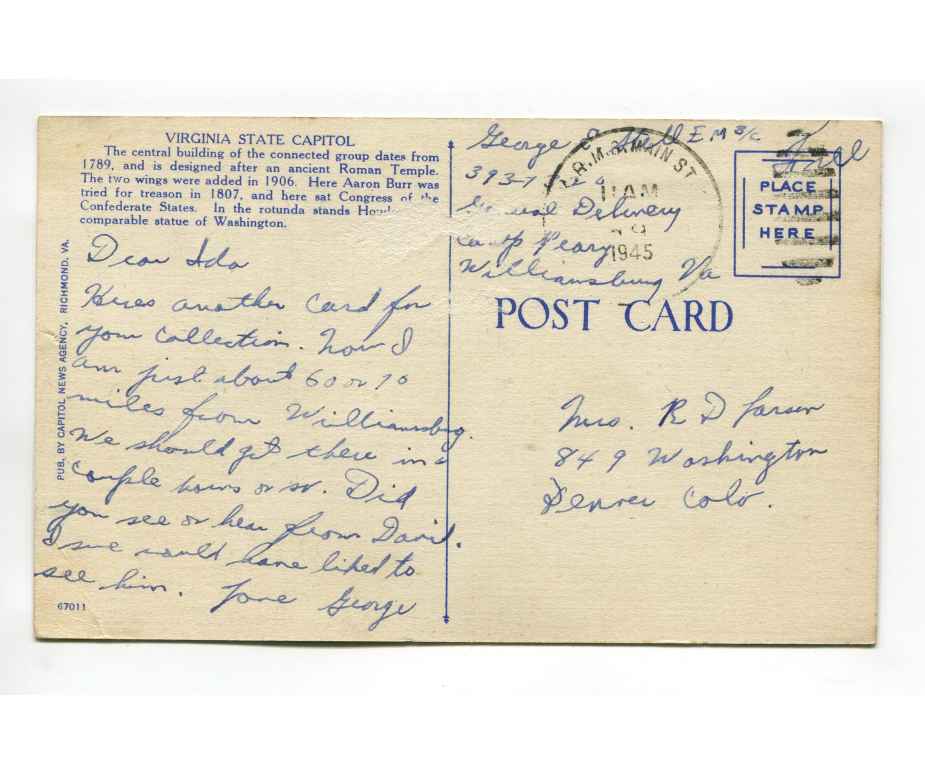 VIRGINIA STATE CAPITOL
The central building of the connected group dates from
1789, and is designed after an ancient Roman Temple.
The two wings were added in 1906. Here Aaron Burr was
tried for treason in 1807, and here sat Congress of the
Confederate States. In the rotunda stands
comparable statue of Washington.
PUB. BY CAPITOL NEWS AGENCY, RICHMOND, VA.
Dear Ida
Heres another card for
your collection. Now I
am just about 60 or 70
miles from Williamsburg.
We should get there in a
couple hours or so. Did
you see or hear from David.
I sure would have liked to
see him. Love George
67011
George E M 3/c
393-7
General Delivery
Camp Peary
Williamsburg Va
Free
MAIN ST
11 AM
1945
PLACE
STAMP
HERE
POST CARD
Mrs. R D Larsen
849 Washington
Denver Colo.